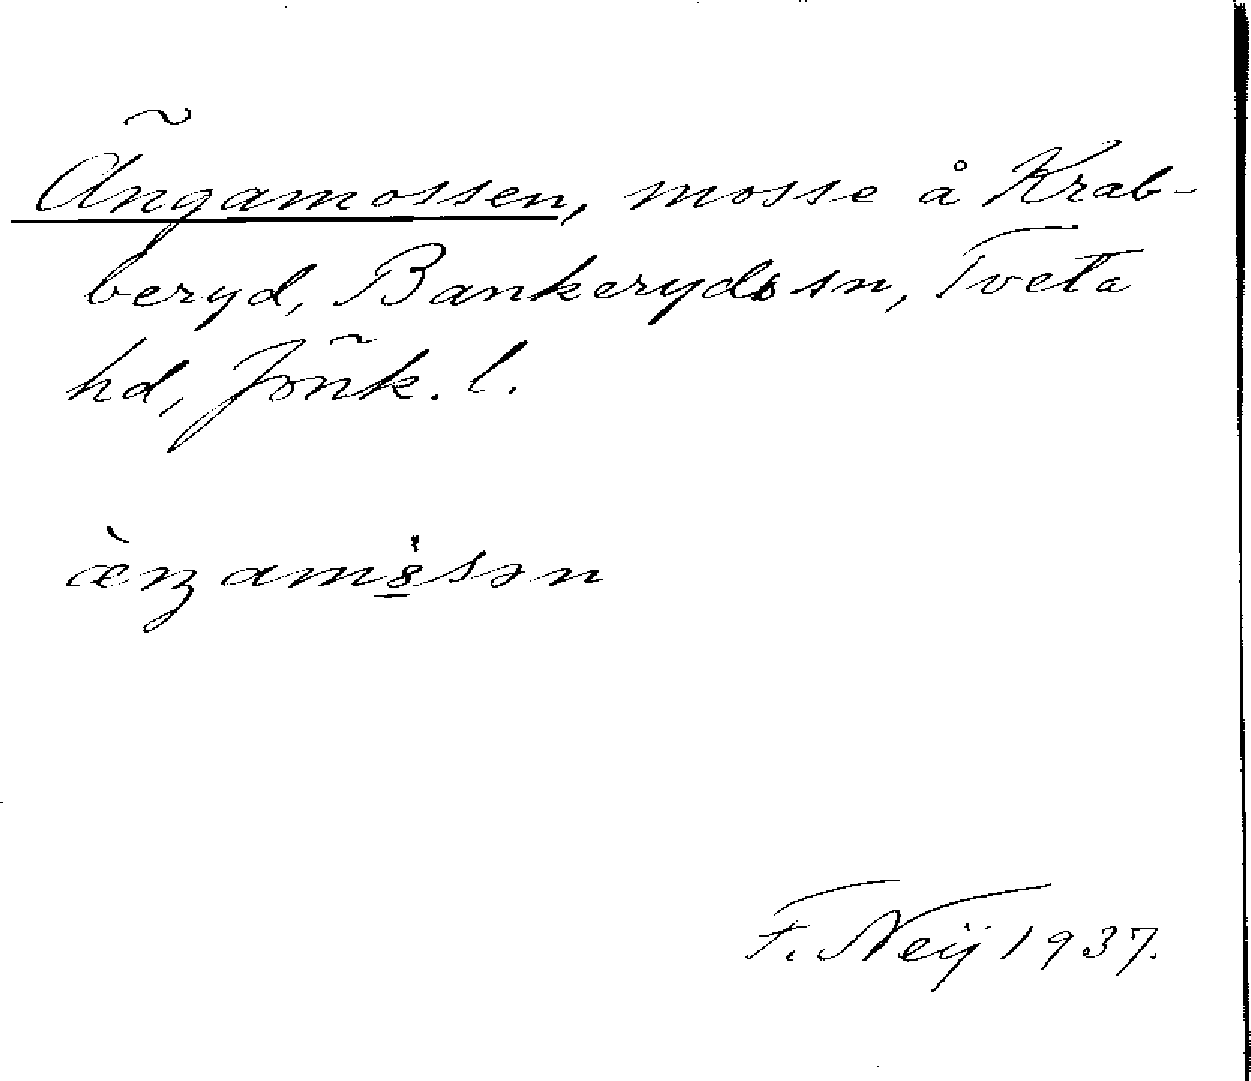 Ängamossen, mosse å Krab-
beryd, Bankeryds sn, Tveta
hd, Jönk. l.
æ̀ŋamo̠ssən
F. Neij 1937.